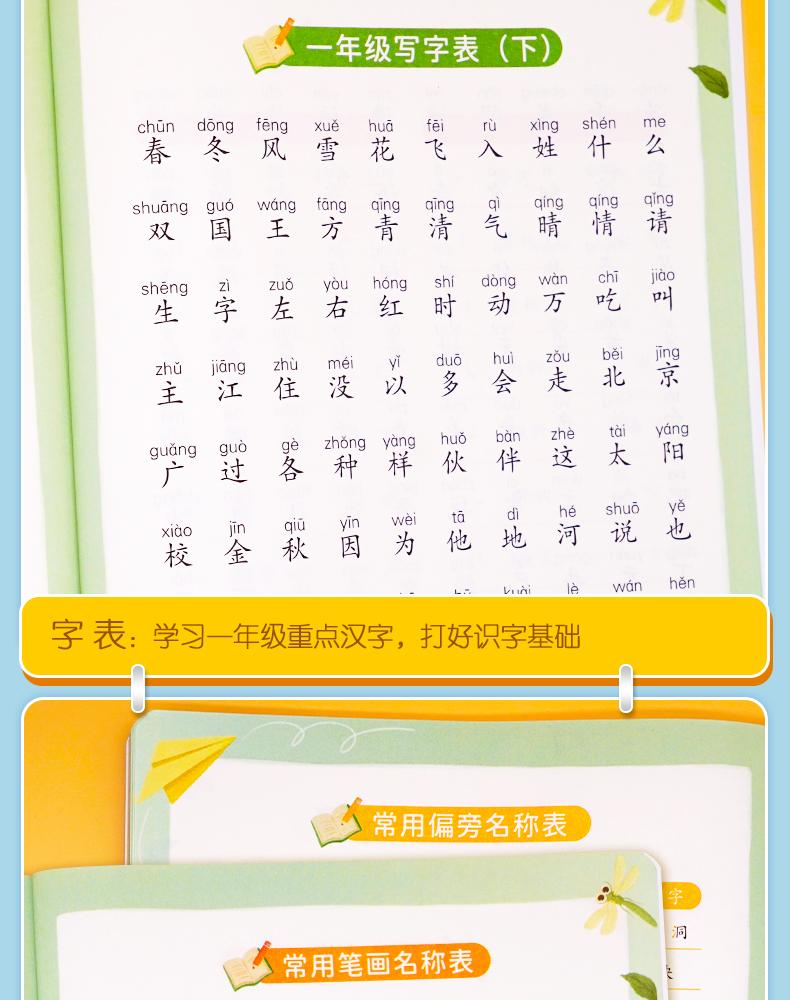 一年级写字表（下）
chūn dōng fēng xuě huā fēi rù xìng shén me
春 冬 风 雪 花 飞 入 姓 什 么
shuāng guó wáng fāng qīng qīng qì qíng qíng qǐng
双 国 王 方 青 清 气 晴 情 请
shēng zì zuǒ yòu hóng shí dòng wàn chī jiào
生 字 左 右 红 时 动 万 吃 叫
zhǔ jiāng zhù méi yǐ duō huì zǒu běi jīng
主 江 住 没 以 多 会 走 北 京
guǎng guò gè zhǒng yàng huǒ bàn zhè tài yáng
广 过 各 种 样 伙 伴 这 太 阳
xiào jīn qiū yīn wèi tā dì hé shuō yě
校 金 秋 因 为 他 地 河 说 也
kuài lè wán hěn
字表：学习一年级重点汉字，打好识字基础
常用偏旁名称表
字
洞
常用笔画名称表